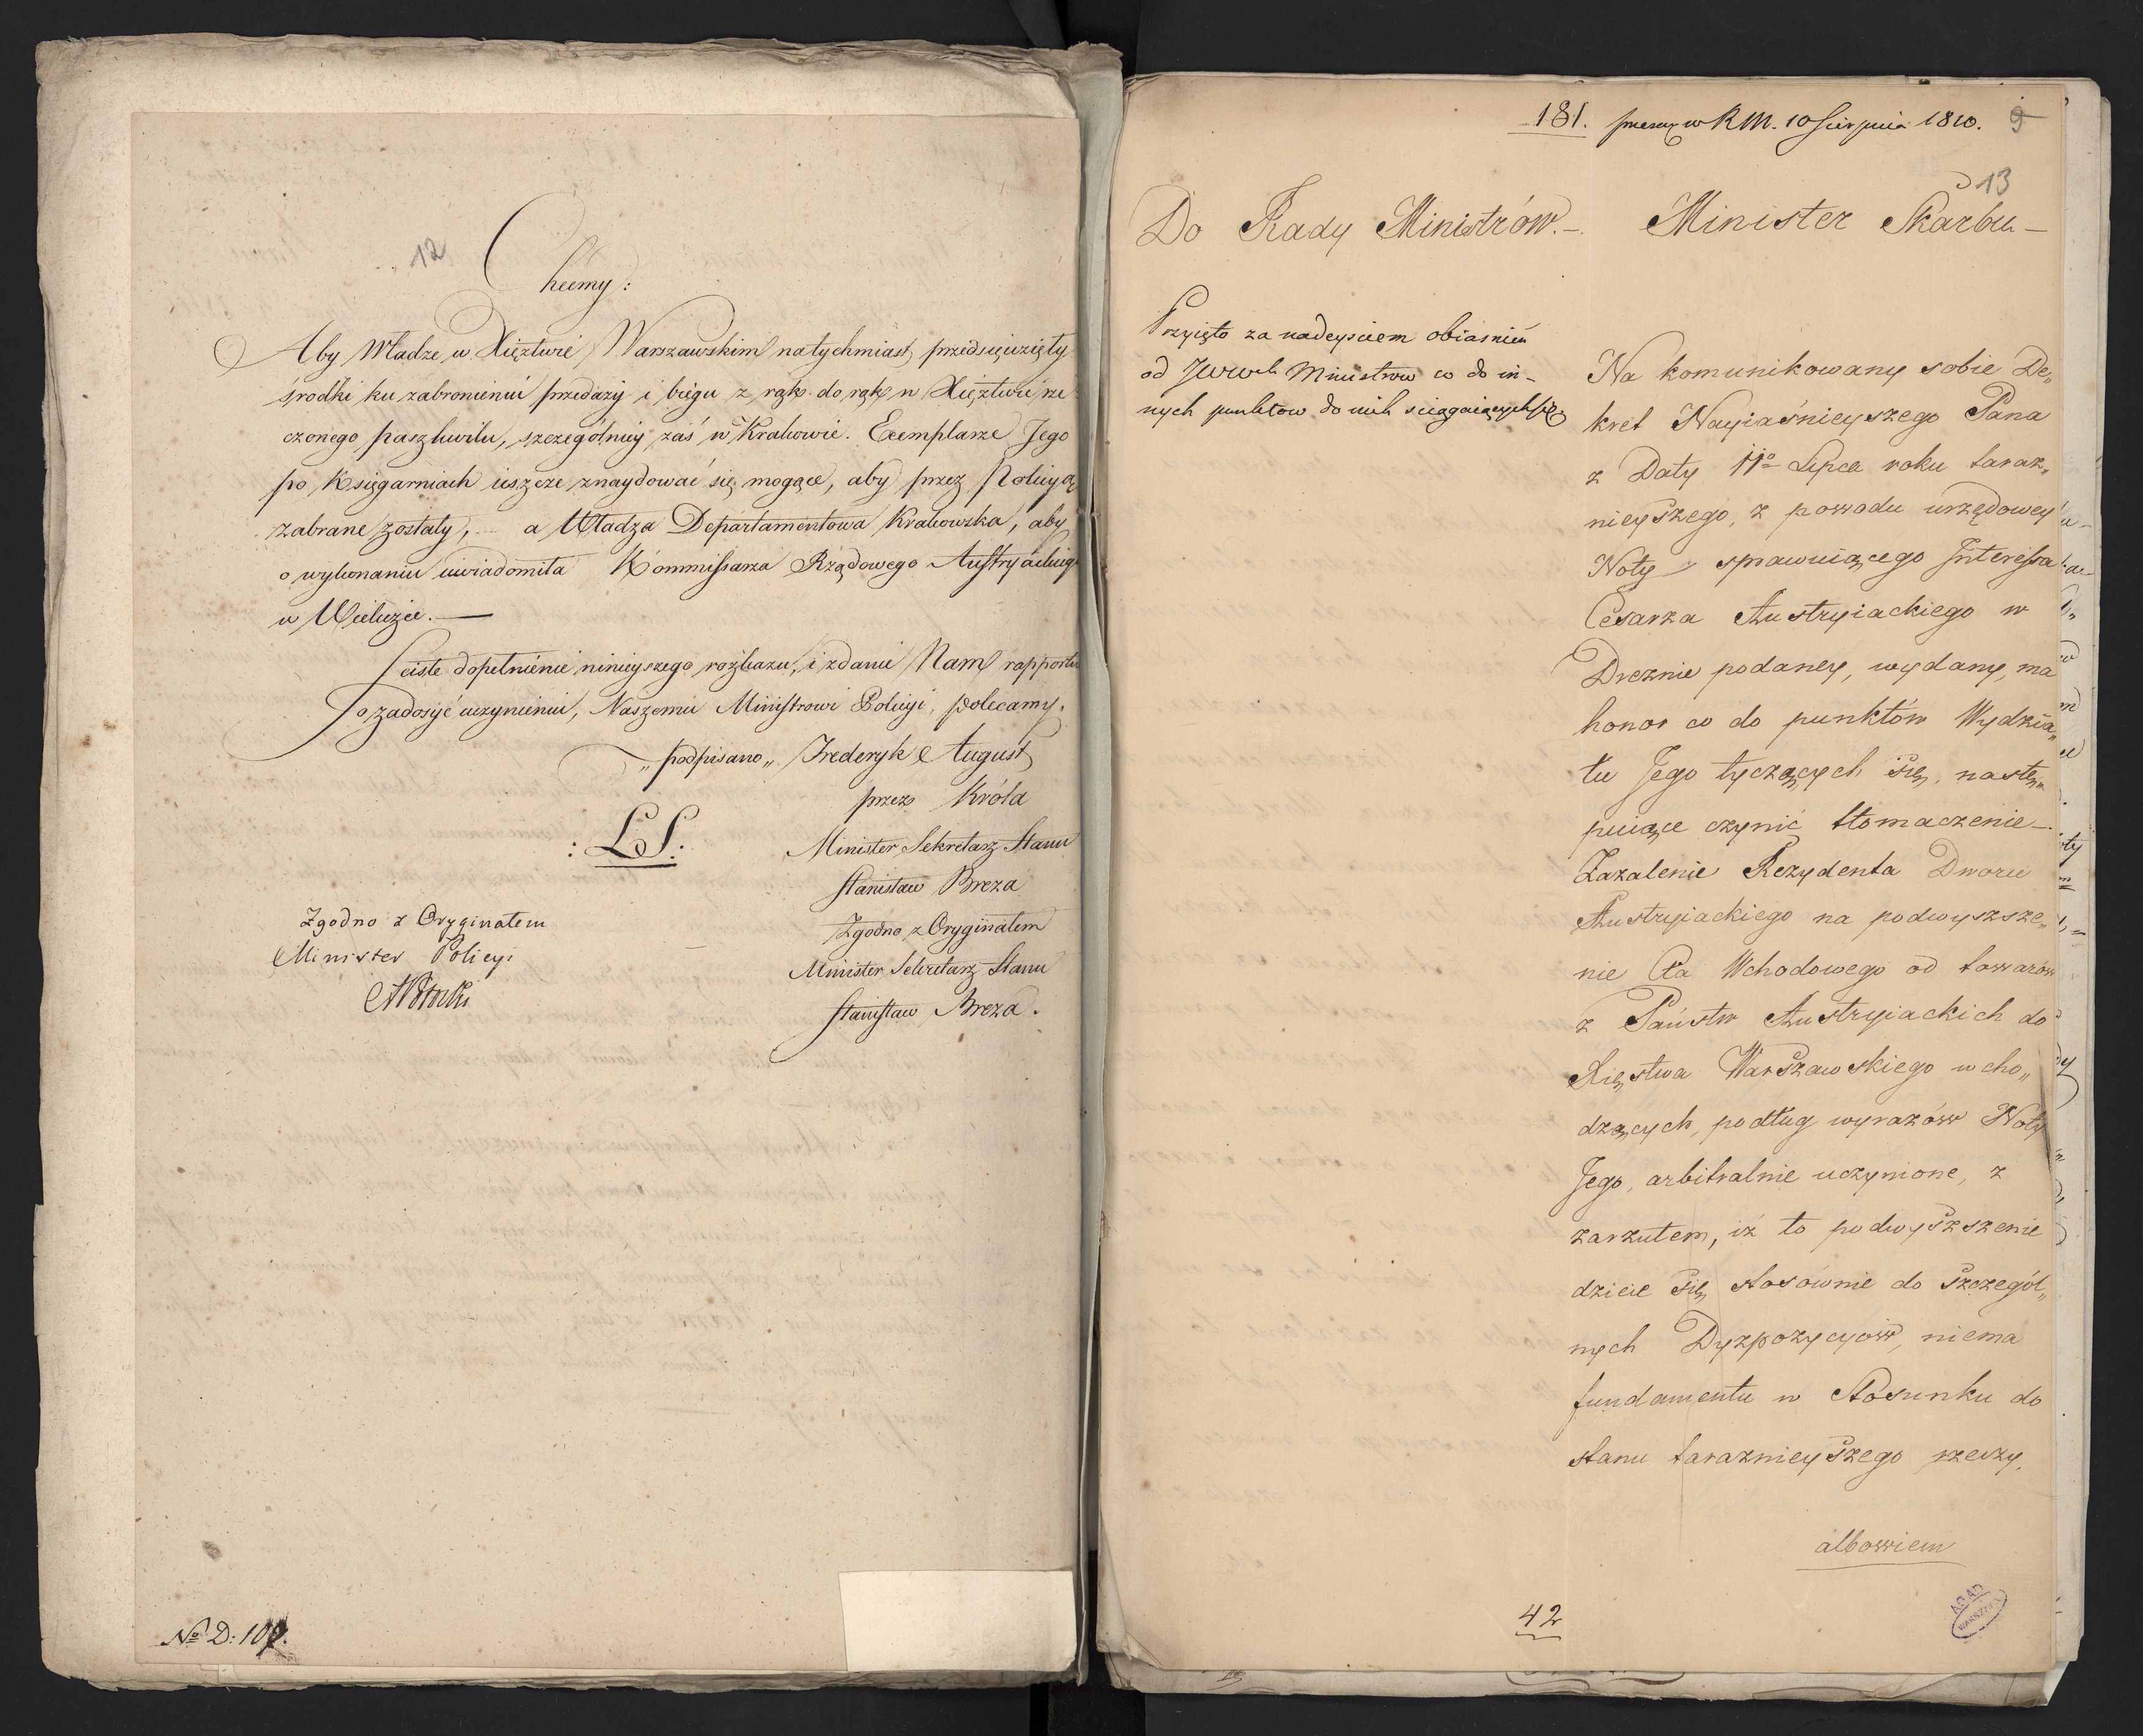 12
Chcemy:
Aby Władze w Xięztwie Warszawskim natychmiast, przedsięwzięły
środki ku zabronieniu przedaży i biegu z rąk do rąk w Xięztwie rze
czonego paszkwilu, szczególniey zaś w Krakowie. Exemplarze Jego
po Księgarniach ieszcze znaydować się mogące, aby przez Policyą
zabrane zostały, a Władza Departamentowa Krakowska, aby
o wykonaniu uwiadomiła Kommissarza Rządowego Austryackiego
w Wieliczce. —
Scisłe dopełnienie ninieyszego rozkazu, i zdanie Nam rapportu
o zadosyć uczynieniu, Naszemu Ministrowi Policyi, polecamy.
„podpisano„ Frederyk August
przez Króla
: LS:
Minister Sekretarz Stanu
Stanisław Breza
Zgodno z Oryginałem
Minister Sekretarz Stanu
Stanisław Breza.
Zgodno z Oryginałem
Minister Policyi
APotocki
No D: 107.
181. prezen. w RM. 10 Sierpnia 1810. 9
13
Do Rady Ministrów. —
Minister Skarbu —
Przyięto za nadeysciem obiasnień
od JWWch Ministrow co do in-
nych punktow do nich sciągaiących się.
Na komunikowany sobie De„
kret Nayiaśnieyszego Pana
z Daty 11o Lipca roku taraz„
nieyszego, z powodu urzędowey
Noty sprawuiącego Interessa
Cesarza Austryiackiego w
Dreznie podaney, wydany, ma
honor co do punktów Wydzia„
łu Jego tyczących się, nastę„
puiące czynić tłomaczenie —
Zażalenie Rezydenta Dworu
Austryiackiego na podwyszsze„
nie Cła Wchodowego od towarów
z Państw Austryiackich do
Xięstwa Warszawskiego wcho„
dzących, podług wyrazów Noty
Jego, arbitralnie uczynione, z
zarzutem, iż to podwyszszenie
dzieie się stosownie do szczegól„
nych Dyzpozycyów, niema
fundamentu w Stosunku do
stanu taraznieyszego rzeczy.
albowiem
42
AGAD
WARSZAWA